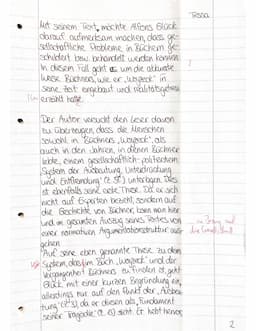 Tessa
Mit seinem Text, möchte Alfons Glück
darauf aufmerksam machen, dass ge-
sellschaftliche Probleme in Büchern ge-
schildert bzw behandelt werden können.
In diesem Fall geht es um die aktuelle
Weise Büchners, wie er "Woyzeck" in
seine Zeit eingebaut und realitätsgetreu
erzählt hatte.
Der Autor versucht den Leser davon
zu überzeugen, dass die Menschen
sowohl in Büchners "Woyzeck", als
auch in den Jahren, in denen Büchner
lebte, einem gesellschaftlich-politischem
System der Ausbeutung, Unterdrückung
und Entfremdung" (Z. 5f) unterlagen. Dies
ist ebenfalls seine These. Da er sich
nicht auf Experten bezieht, sondern auf
die Geschichte von Büchner, kann man hier
und im gesamten Auszug seines Textes von
einer normativen Argumentationsstruktur aus-
gehen
Auf seine eben genannte These zu dem
System, das im Buch "Woyzeck" und der
Vergangenheit Büchners zu finden ist, geht
Glück mit einer kurzen Begründung ein,
allerdings nur auf den Punkt der "Ausbeu-
tung", da er diesen als "Fundament
seiner Tragödie" sieht. Er hebt hervor,
2